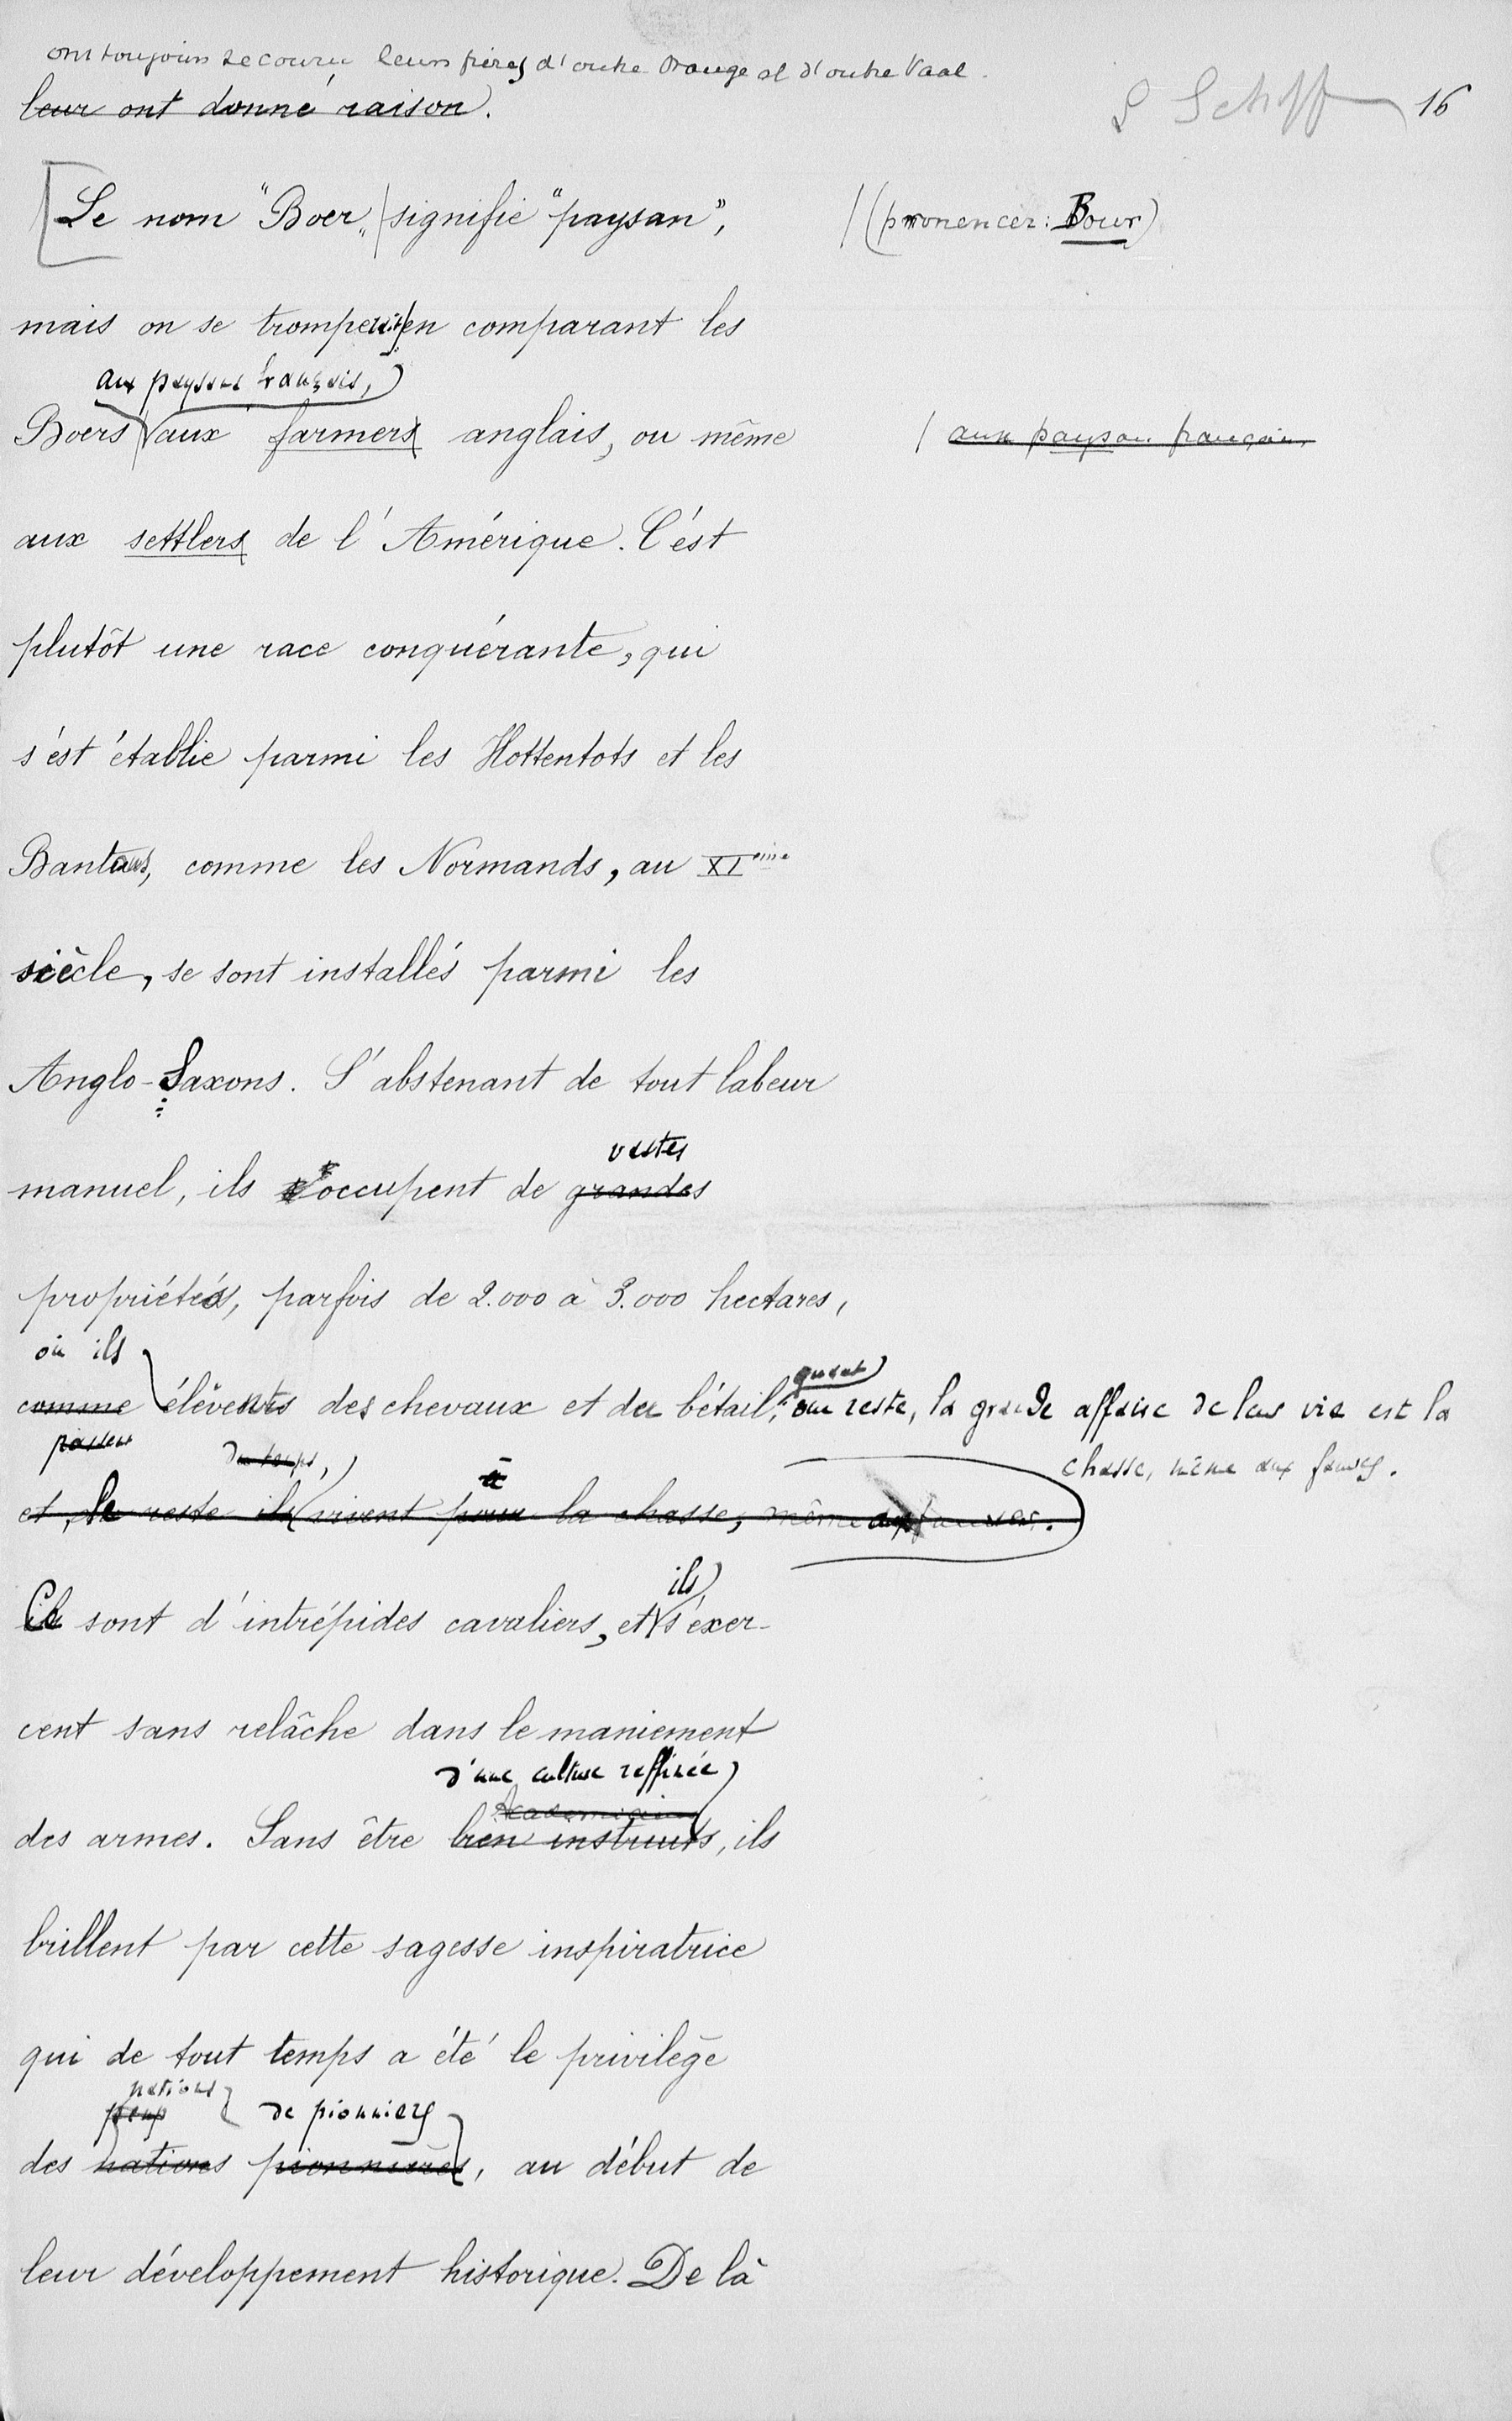 ont toujours secouru leurs frères d'outre Orange et d'outre Vaal.
leur ont donné raison.
S Schiff 16
Le nom "Boer" signifie "paysan",
(prononcer: Bour)
mais on se tromperait en comparant les
aux paysans français,
Boers aux farmers anglais, ou même
aux paysans français,
aux settlers de l'Amérique. C'est
plutôt une race conquérante, qui
s'est établie parmi les Hottentots et les
Bantous, comme les Normands, au XIème
siècle, se sont installés parmi les
Anglo-Saxons. S'abstenant de tout labeur
vastes
manuel, ils occupent de grandes
propriétés, parfois de 2.000 à 3.000 hectares,
où ils
quant
comme élèvent des chevaux et du bétail; au reste, la grande affaire de leur vie est la
chasse, même aux fauves.
passent
du temps, à
et, le reste ils vivent pour la chasse, même aux fauves.
ils
Ce sont d'intrépides cavaliers, et s'exer-
cent sans relâche dans le maniement
d'une culture raffinée
Académiciens
des armes. Sans être bien instruits, ils
brillent par cette sagesse inspiratrice
qui de tout temps a été le privilège
nations
peup de pionniers
des nations pionnières, au début de
leur développement historique. De là